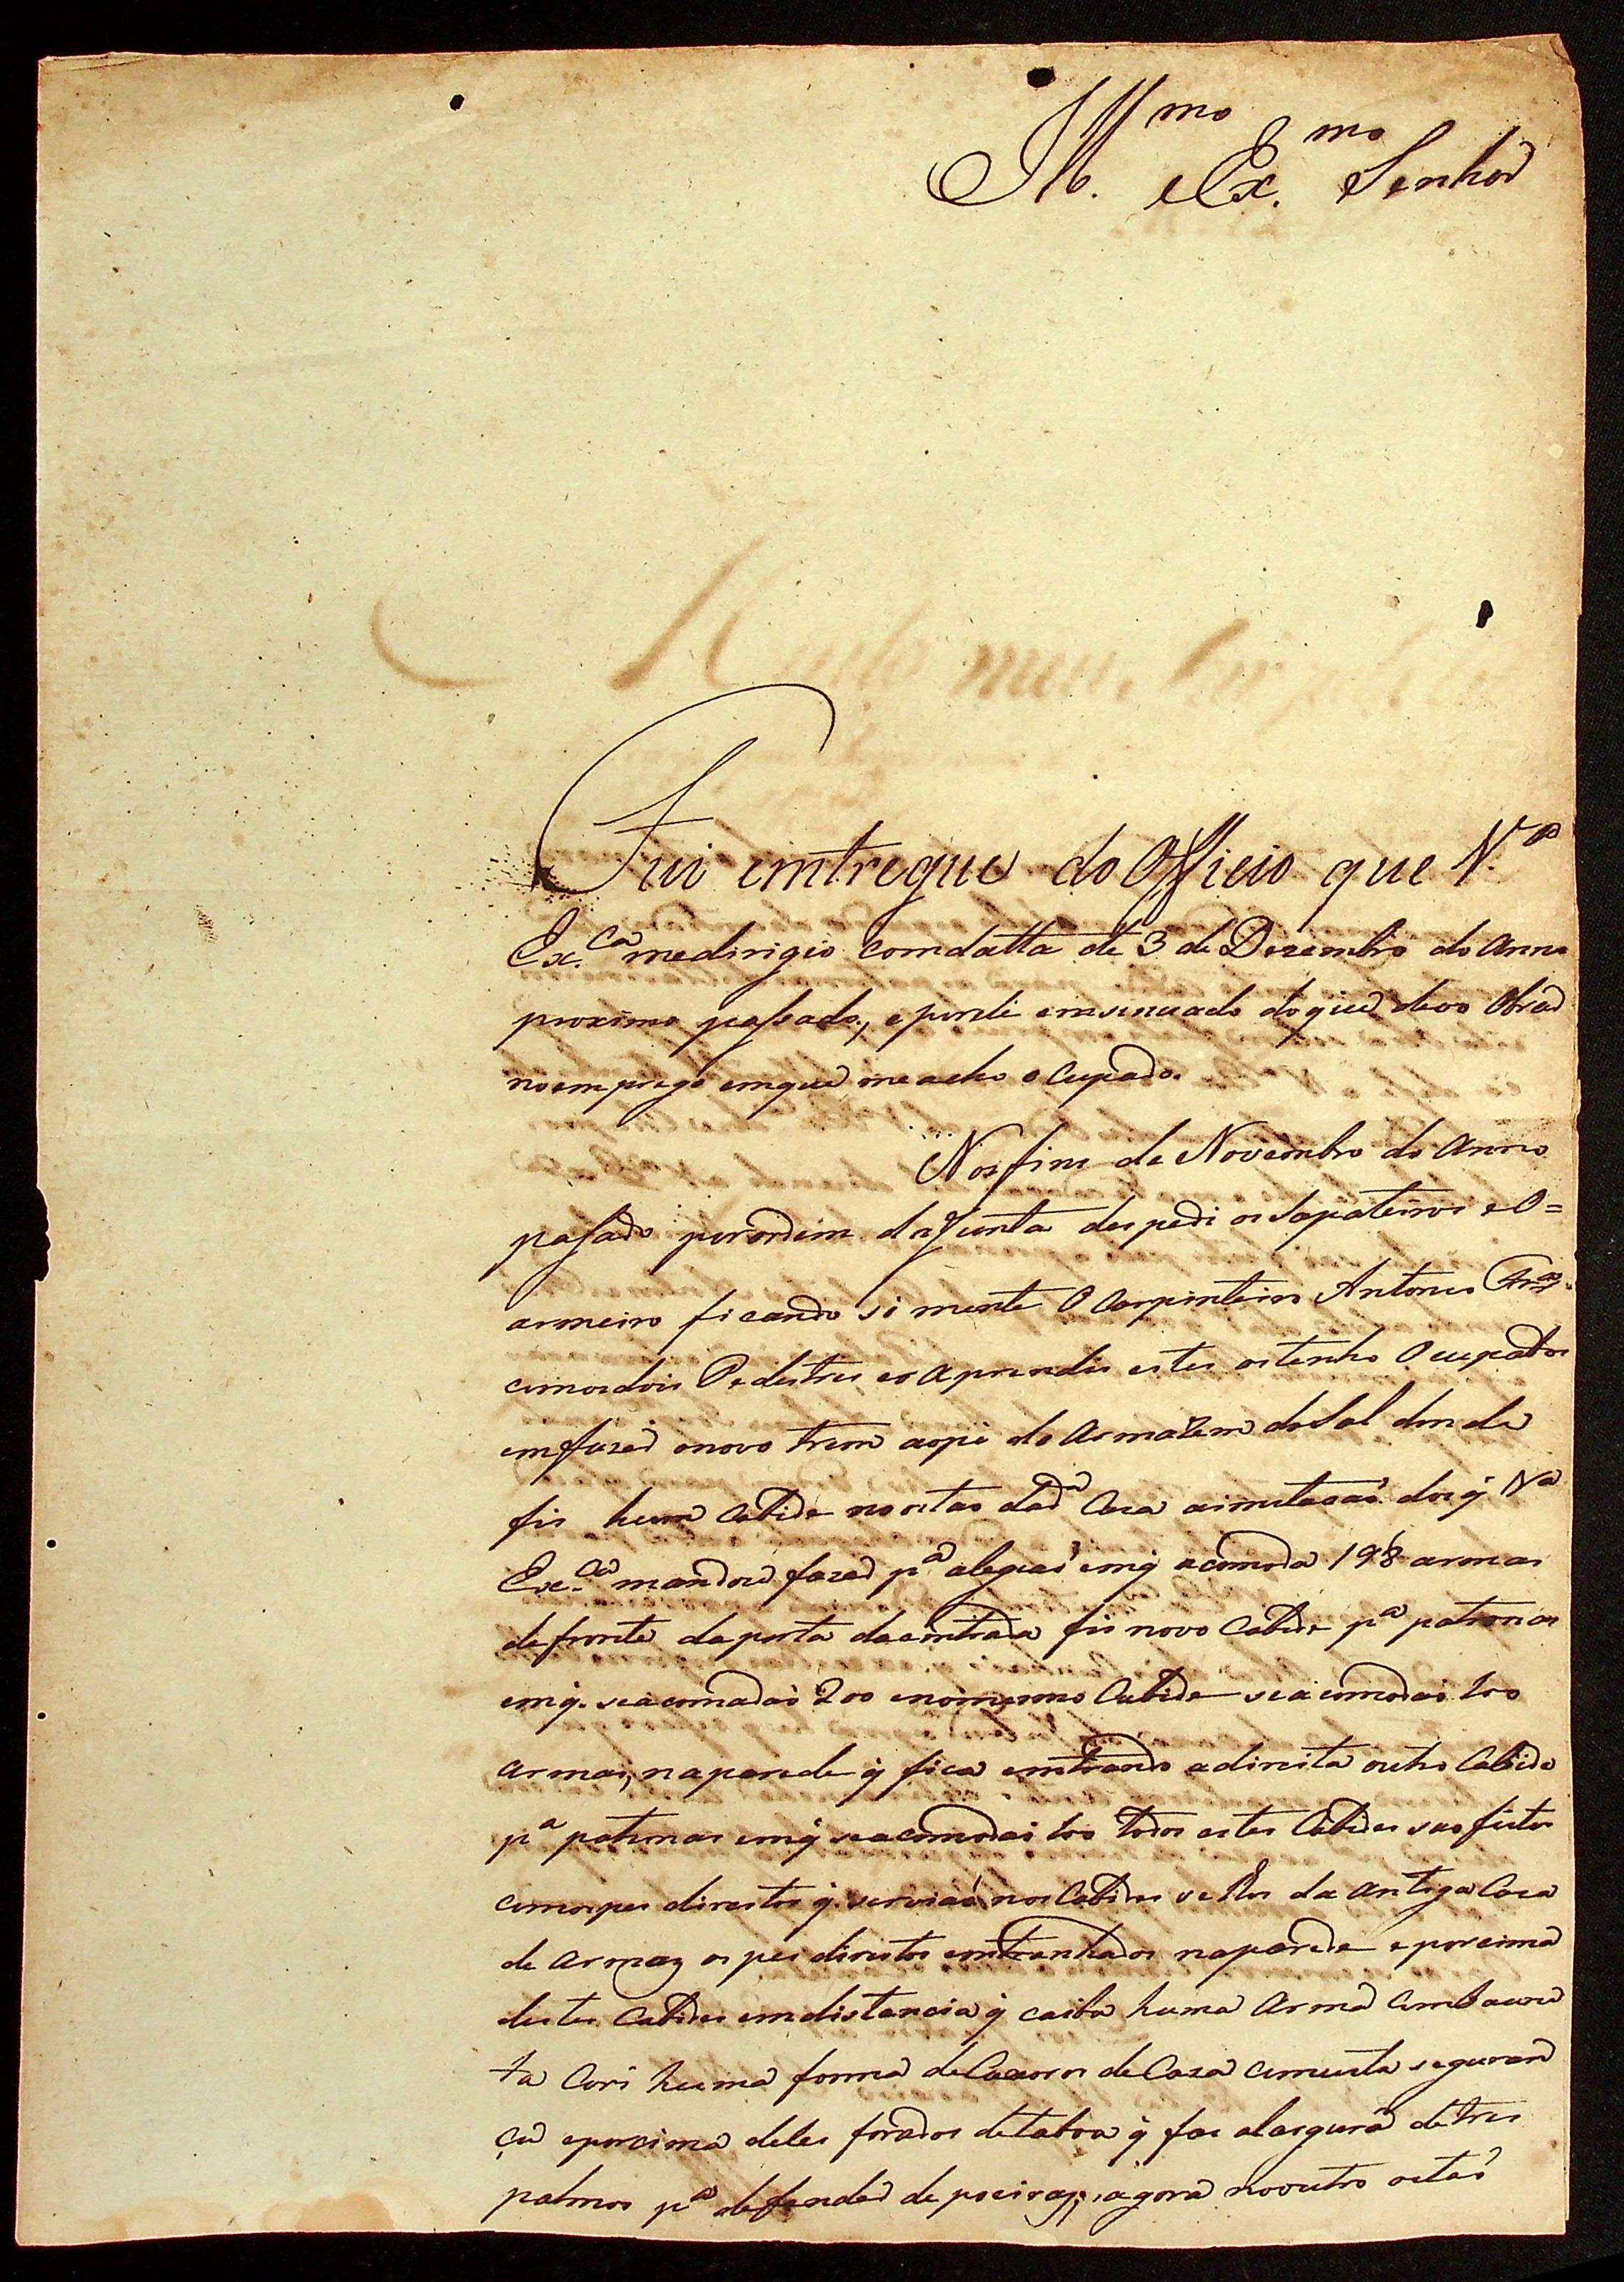 Ill.mo e Ex.mo Senhor
Fui emtregue do Officio que V.a
Ex.ca medirigio comdatta de 3 de Dezembro do Anno
proximo passado, e por ele emsinuado doque devo Obrar
noemprego emque meacho ocupado.
Nosfins de Novembro do Anno
pasado porordem daJunta despedi osSapateiros eO=
armeiro ficando só mente O Carpinteiro Antonio
comosdois Pedestres eoAprendis estes ostenho Ocupados
emfazer onovo trem aopé do Armazem doSal donde
fis hum Cabide nooitaõ dad.a Caza aimitasaõ dos q̃ V.a
Ex.ca mandou fazer p.a emq̃ acomoda 198 armas
defronte daporta daemtrada fis novo Cabide p.a patronas
emq̃. seacomodaõ 200 enomesmo Cabide seacomodaõ 100
armas, naparede q̃ fica emtrando adireita outro Cabide
p.a patronas emq̃ seacomodaõ 100 todos estes Cabides saofeitos
comospes direitos q̃. serviaõ nosCabides velhos da antiga Caza
de Armaz os pes direitos emtranhados naparede eporcima
destes Cabides emdistancia q̃ caiba huma Arma combaione
ta Cori huma forma de deCaza commuita seguran
ça eporcima deles forados detaboa q̃ fas alargura detres
palmos p.a defender depoeiraz, agora nooutro oitaõ